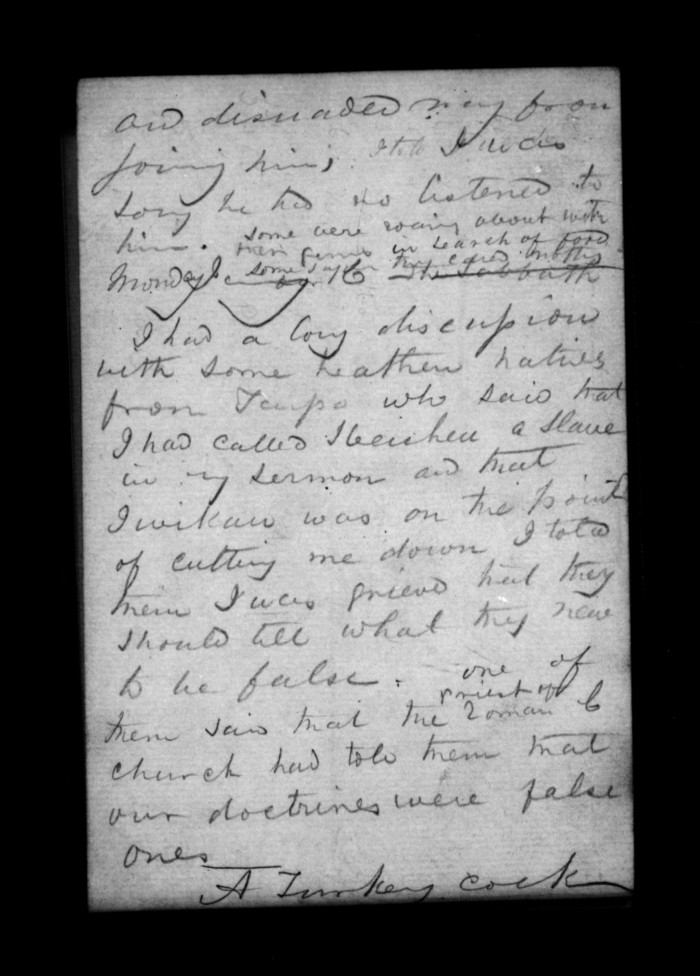 and disuaded many from
joining him; I told I was
sorry he had so listened to
him. some were roaming about with
their guns in search of food
Monday some say they called
The Sabbath
I had a long discussion
with some heathen natives
from Taupo who said that
I had called a slave
in my sermon and that
Iwikau was on the point
of cutting me down I told
them I was grieved that they
should tell what they knew
to be false. one of
them said that the priest of Roman C
church had told them that
our doctrines were false
ones
A Turkey cock